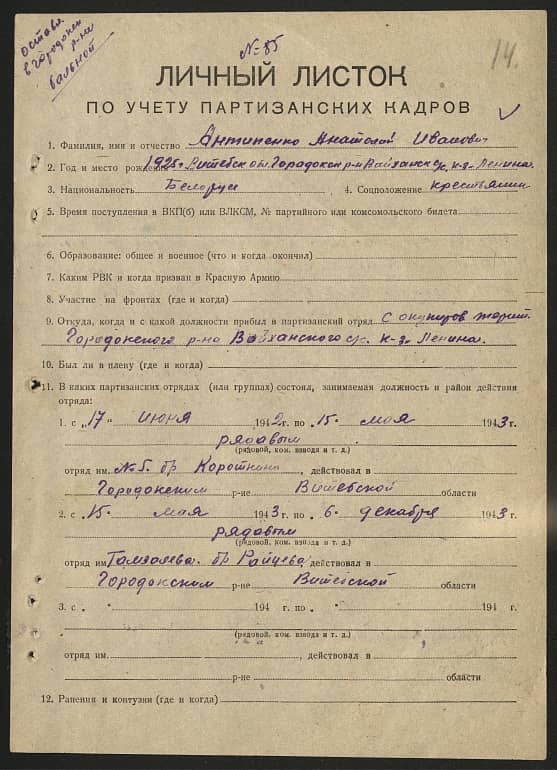 оставл.
в городокск
р-не
больной
№ 85
14.
ЛИЧНЫЙ ЛИСТОК
ПО УЧЕТУ ПАРТИЗАНСКИХ КАДРОВ
1. Фамилия, имя и отчество Антиненко Анатолий Иванович
2. Год и место рождения 1925 г. Витебской Городокск р-н Вайханск с/с. к-з. Ленина.
3. Национальность Белорус 4. Соцположение крестьянин
5. Время поступления в ВКП(б) или ВЛКСМ, № партийного или комсомольского билета
6. Образование: общее и военное (что и когда окончил)
7. Каким РВК и когда призван в Красную Армию
8. Участие на фронтах (где и когда)
9. Откуда, когда и с какой должности прибыл в партизанский отряд с оккупиров террит.
Городокского р-на Вайханского с/с. к-з. Ленина.
10. Был ли в плену (где и когда)
11. В каких партизанских отрядах (или группах) состоял, занимаемая должность и район действия
отряда:
1. с „17" июня 1942 г. по „15" мая 1943 г.
рядовым
(рядовой, ком. взвода и т. д.)
отряд им. №5. бр Короткина, действовал в
Городокским р-не Витебской области
2. с „15" мая 1943 г. по „6" декабря 1943 г.
рядовым
(рядовой, ком. взвода и т. д.)
отряд им. бр Райцева действовал в
Городокским р-не Витебской области
3. с „ " 194 г. по „ " 194 г.
(рядовой, ком. взвода и т. д.)
отряд им. , действовал в
р-не области
12. Ранения и контузии (где и когда)